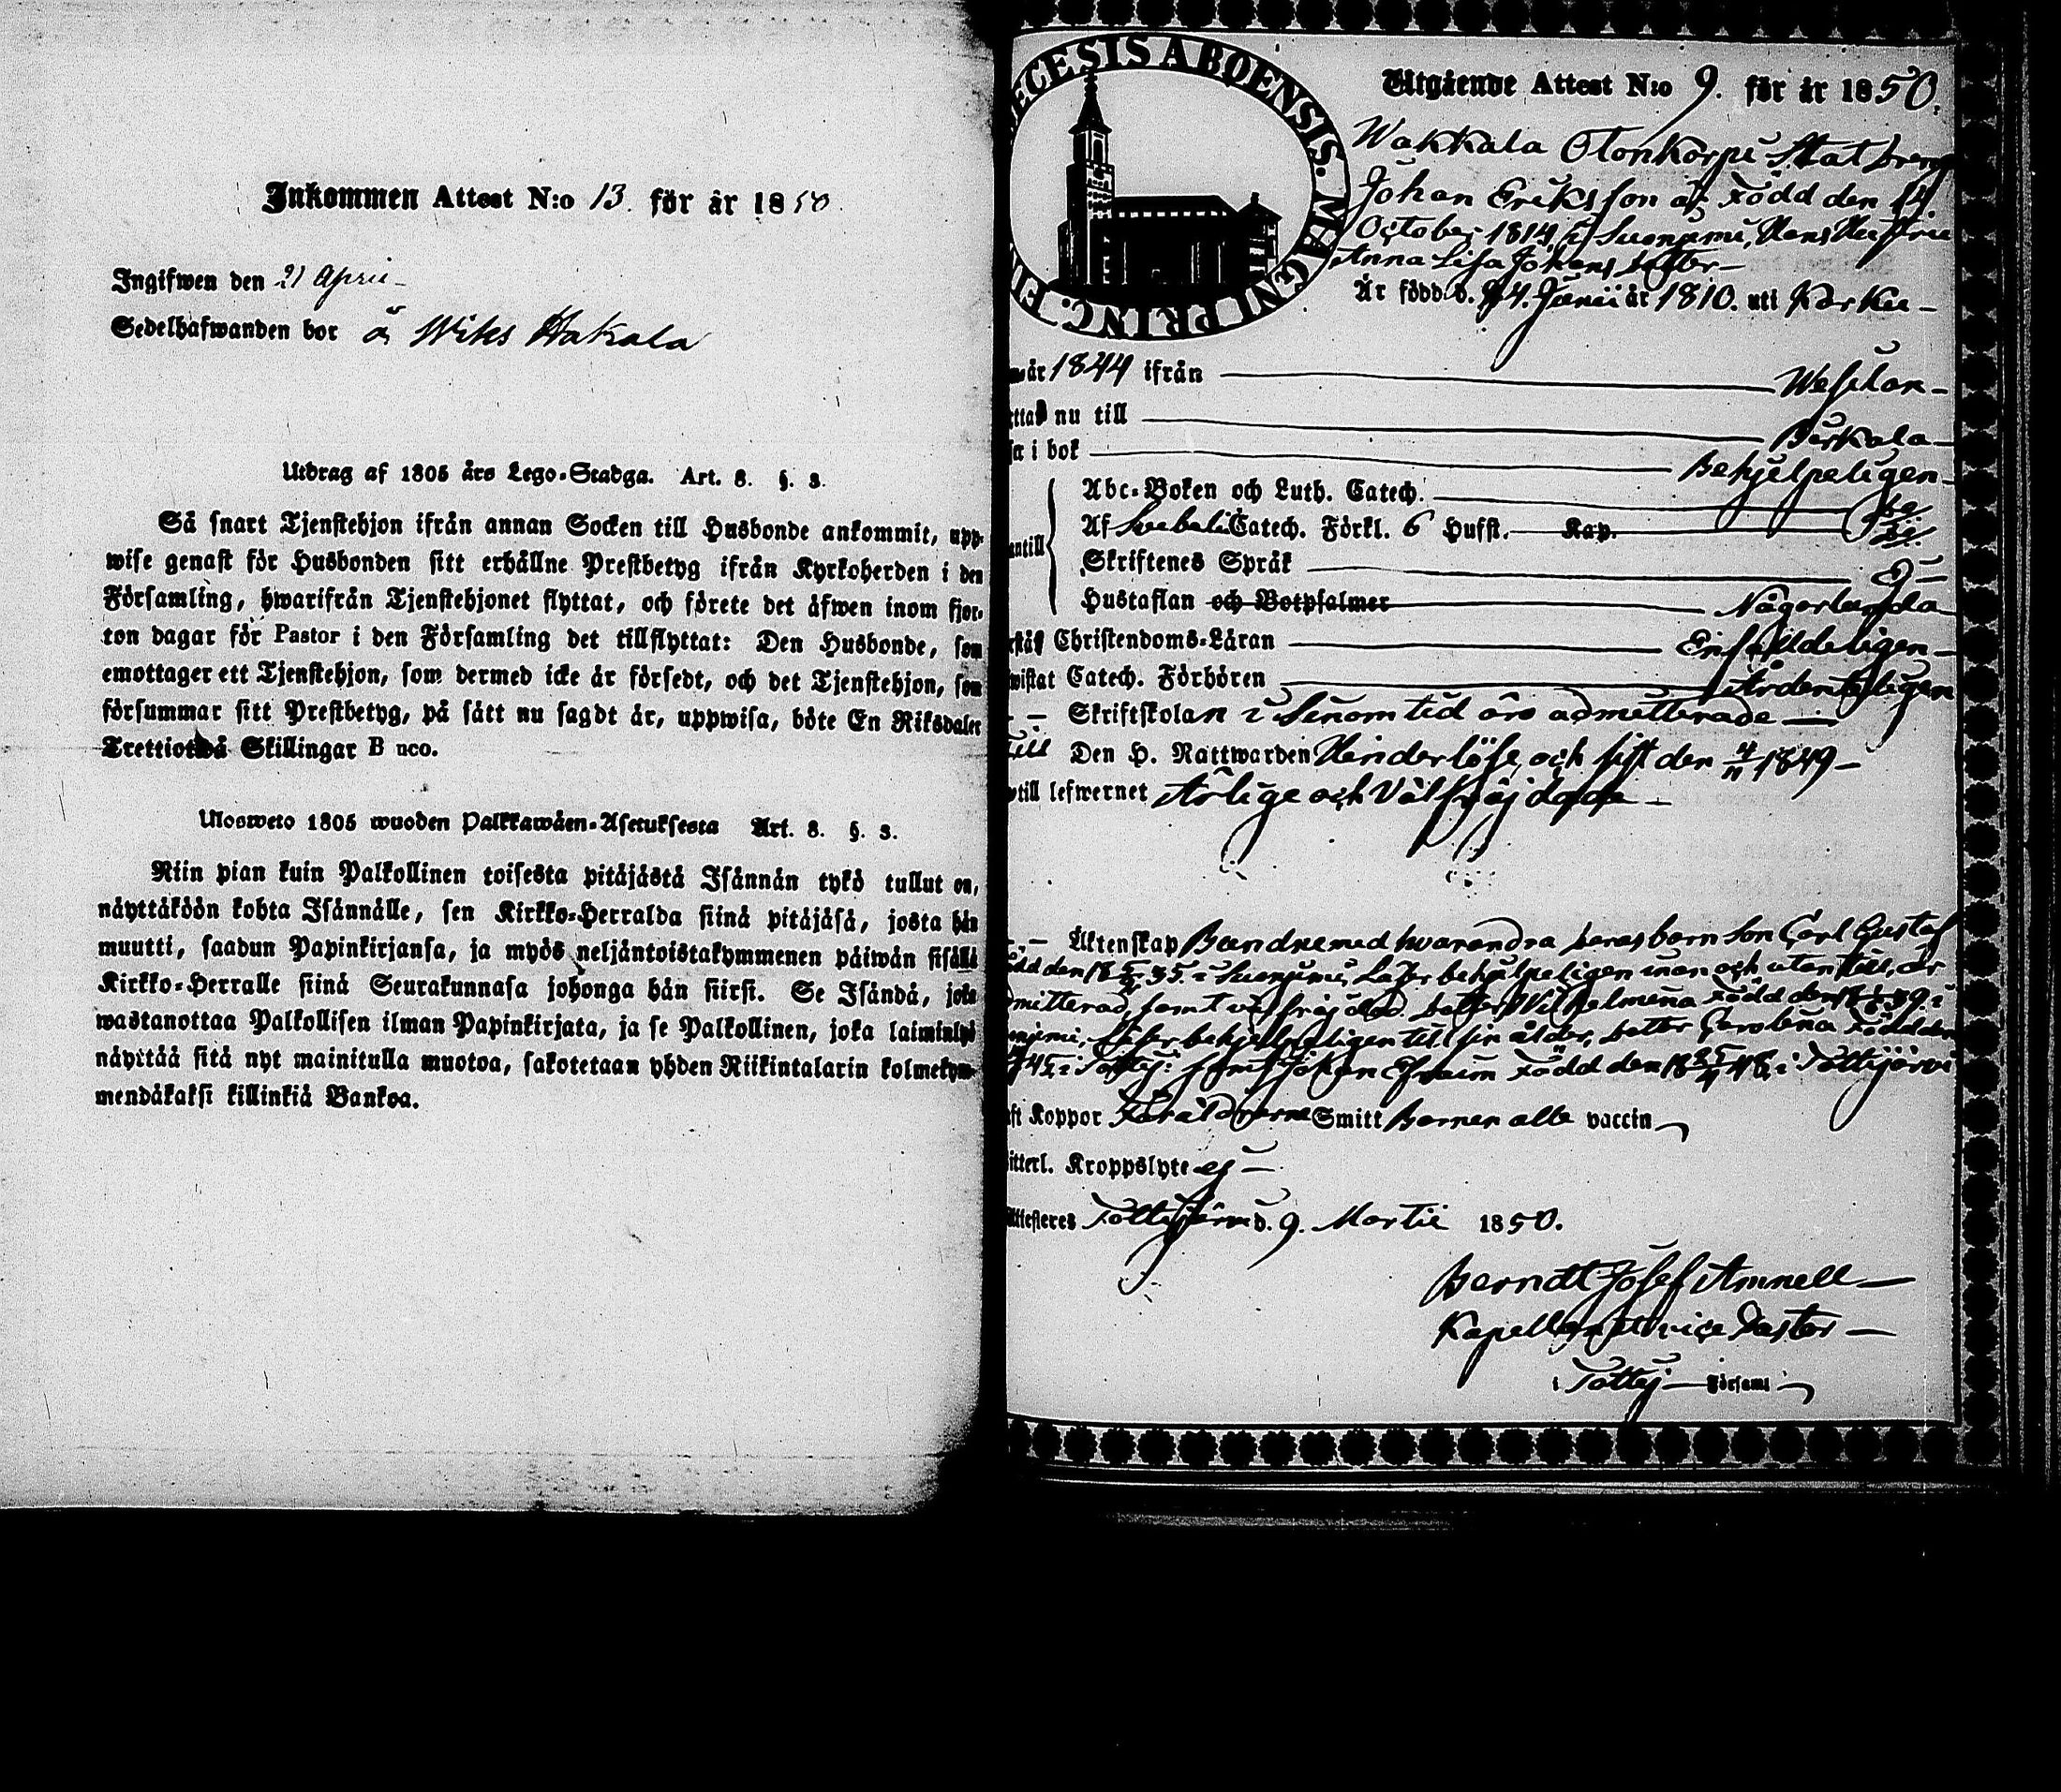 Inkommen Attest N:o 13. för år 1850
Ingifwen den 21 April
Sedelhafwanden bor å Wiks Hakala
Utdrag af 1805 års Lego-Stadga. Art. 8. §. 3.
Så snart Tjenstehjon ifrån annan Socken till Husbonde ankommit, upp-
wise genast för Husbonden sitt erhållne Prestbetyg ifrån Kyrkoherden i den
Församling, hwarifrån Tjenstehjonet flyttat, och förete det äfwen inom fjor-
ton dagar för Pastor i den Församling det tillflyttat: Den Husbonde, som
emottager ett Tjenstehjon, som dermed icke är försedt, och det Tjenstehjon, som
försummar sitt Prestbetyg, på sätt nu sagdt är, uppwisa, böte En Riksdaler
Trettiotwå Skillingar Banco.
Ulosweto 1805 wuoden Palkkawäen-Asetuksesta Art. 8. §. 3.
Niin pian kuin Palkollinen toisesta pitäjästä Isännän tykö tullut on,
näyttäköön kohta Isännälle, sen Kirkko-Herralda siinä pitäjäsä, josta hän
muutti, saadun Papinkirjansa, ja myös neljäntoistakymmenen päiwän sisällä
Kirkko-Herralle siinä Seurakunnasa johonga hän siirsi. Se Isändä, joka
wastanottaa Palkollisen ilman Papinkirjata, ja se Palkollinen, joka laiminlyö
näyttää sitä nyt mainitulla muotoa, sakotetaan yhden Riikintalarin kolmekym-
mendäkaksi killinkiä Bankoa.
ECESIS ABOENSIS. MAGNI PRINC. FIN
Utgående Attest N:o 9. för år 1850.
Wakkala Otonkorpi Statdreng
Johan Eriksson är Född den 14
October 1814 i Suonjemi, Hans Hustru
Anna Lisa Johansdotter
Är född d. 24. Junii år 1810. uti Karku
år 1844 ifrån Wesilax
ttad nu till Birkala
i bok Behjelpeligen
Abc-Boken och Luth. Catech.
Af Svebelii Catech. Förkl. 6 Hufst. Kap.
Skriftenes Språk Ej
Hustaflan och Botpsalmer Någorlunda
Christendoms-Läran Enfaldeligen
wistat Catech. Förhören Ordenteligen
Skriftskolan i Sinom tid äro admitterade
till Den H. Nattwarden Hinderlöse, och sist den 4/11 1849
till lefwernet Ärlige och Välfräjdade
Äktenskap Bundne med hvarandra deras barn Son Carl Gustaf
dd den 18 35. i Suonjemi, Läser behjelpeligen innan och utantill, är
dmitterad, samt välfräjdad, dotter Wilhelmina Född den 18 39. i
onjemi, Läser behjelpeligen till sin ålder, dotter Carolina Född den
45. i Tottij: samt Johan Efraim Född den 18 48, i Tottijärvi
Koppor Föräldrarne Smitt Barnen alla vaccin
itterl. Kroppslyte ej
Attesteres Tottijärvi d. 9. Martii 1850.
Berndt Josef Amnell
Kapellan et vice Pastor
i Tottij Församl